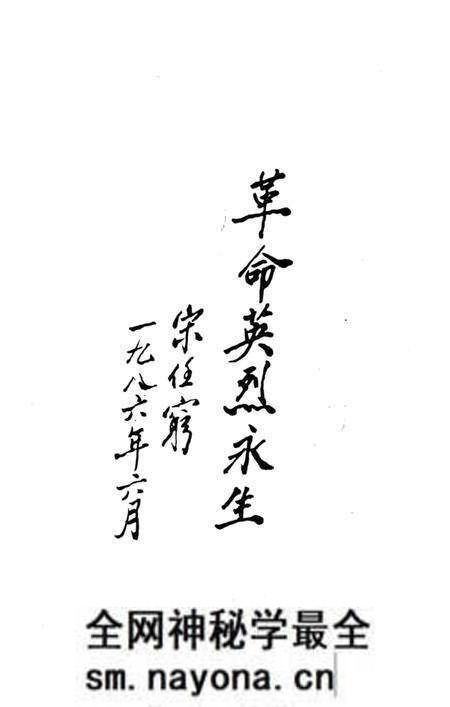 革命英烈永生
宋任穷
一九八六年六月
全网神秘学最全
sm.nayona.cn